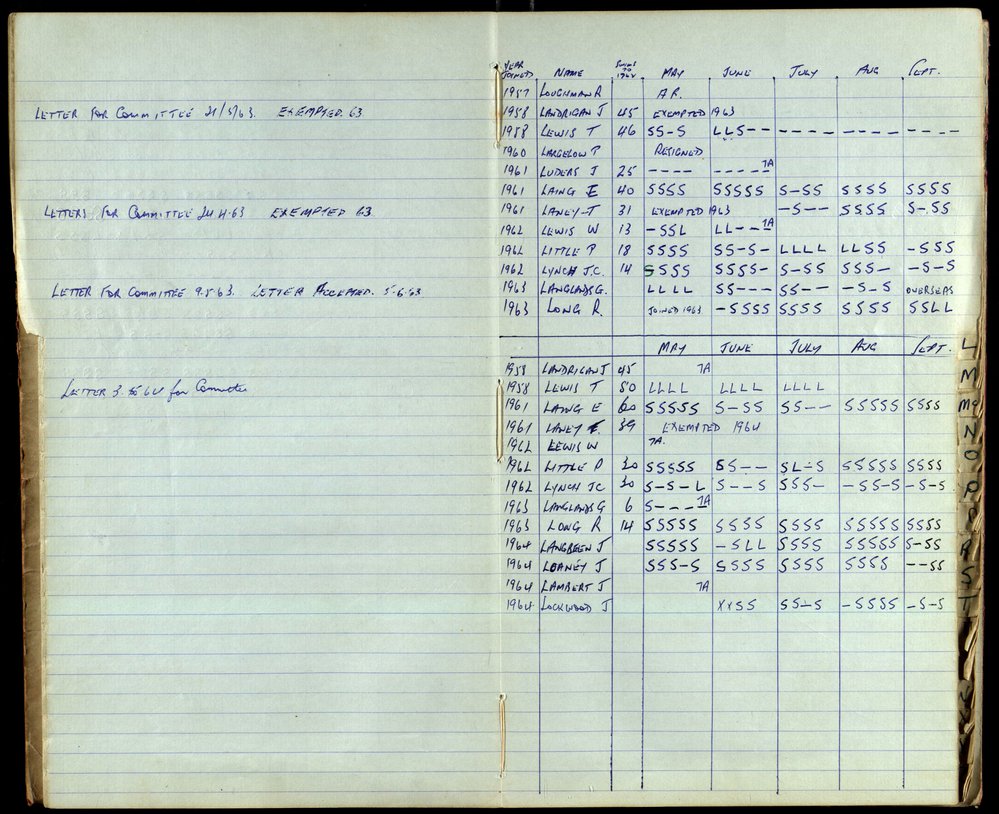 LETTER FOR COMMITTEE 21/5/63. EXEMPTED. 63
LETTERS FOR COMMITTEE 24.4.63 EXEMPTED 63.
LETTER FOR COMMITTEE 9.5.63. LETTER ACCEPTED. 5.6.63
LETTER 3. to 64 for Committee
YEAR JOINED NAME SWIMS TO 1962 MAY JUNE JULY AUG SEPT.
1957 LOUGHMAN R A.R.
1958 LANDRIGAN J 45 EXEMPTED 1963
1958 LEWIS T 46 SS-S LLS-- ---- ---- ----
1960 LARGELOW P RESIGNED
1961 LUDERS J 25 ---- ----- 7A
1961 LAING E 40 SSSS SSSSS S-SS SSSS SSSS
1961 LANEY T 31 EXEMPTED 1963 -S-- SSSS S-SS
1962 LEWIS W 13 -SSL LL--- 7A
1962 LITTLE P 18 SSSS SS-S- LLLL LLSS -SSS
1962 LYNCH J.C. 14 SSSS SSSS- S-SS SSS- -S-S
1963 LANGLANDS G. LLLL SS--- SS-- -S-S OVERSEAS
1963 LONG R. JOINED 1963 -SSSS SSSS SSSS SSLL
MAY JUNE JULY AUG SEPT.
1958 LANDRIGAN J 45 7A
1958 LEWIS T 50 LLLL LLLL LLLL
1961 LAING E 60 SSSSS S-SS SS-- SSSSS SSSS
1961 LANEY 39 EXEMPTED 1964
1962 LEWIS W 7A.
1962 LITTLE P 30 SSSSS SS-- SL-S SSSSS SSSS
1962 LYNCH JC 30 S-S-L S--S SSS- -SS-S -S-S
1963 LANGLANDS G 6 S---- 7A
1963 LONG R 14 SSSSS SSSS SSSS SSSSS SSSS
1964 LANGBEEN J SSSSS -SLL SSSS SSSSS S-SS
1964 LOANEY J SSS-S SSSS SSSS SSSS --SS
1964 LAMBERT J 7A
1964 LOCKWOOD J XXSS SS-S -SSSS -S-S
L
M
Mc
N
O
P
R
S
T